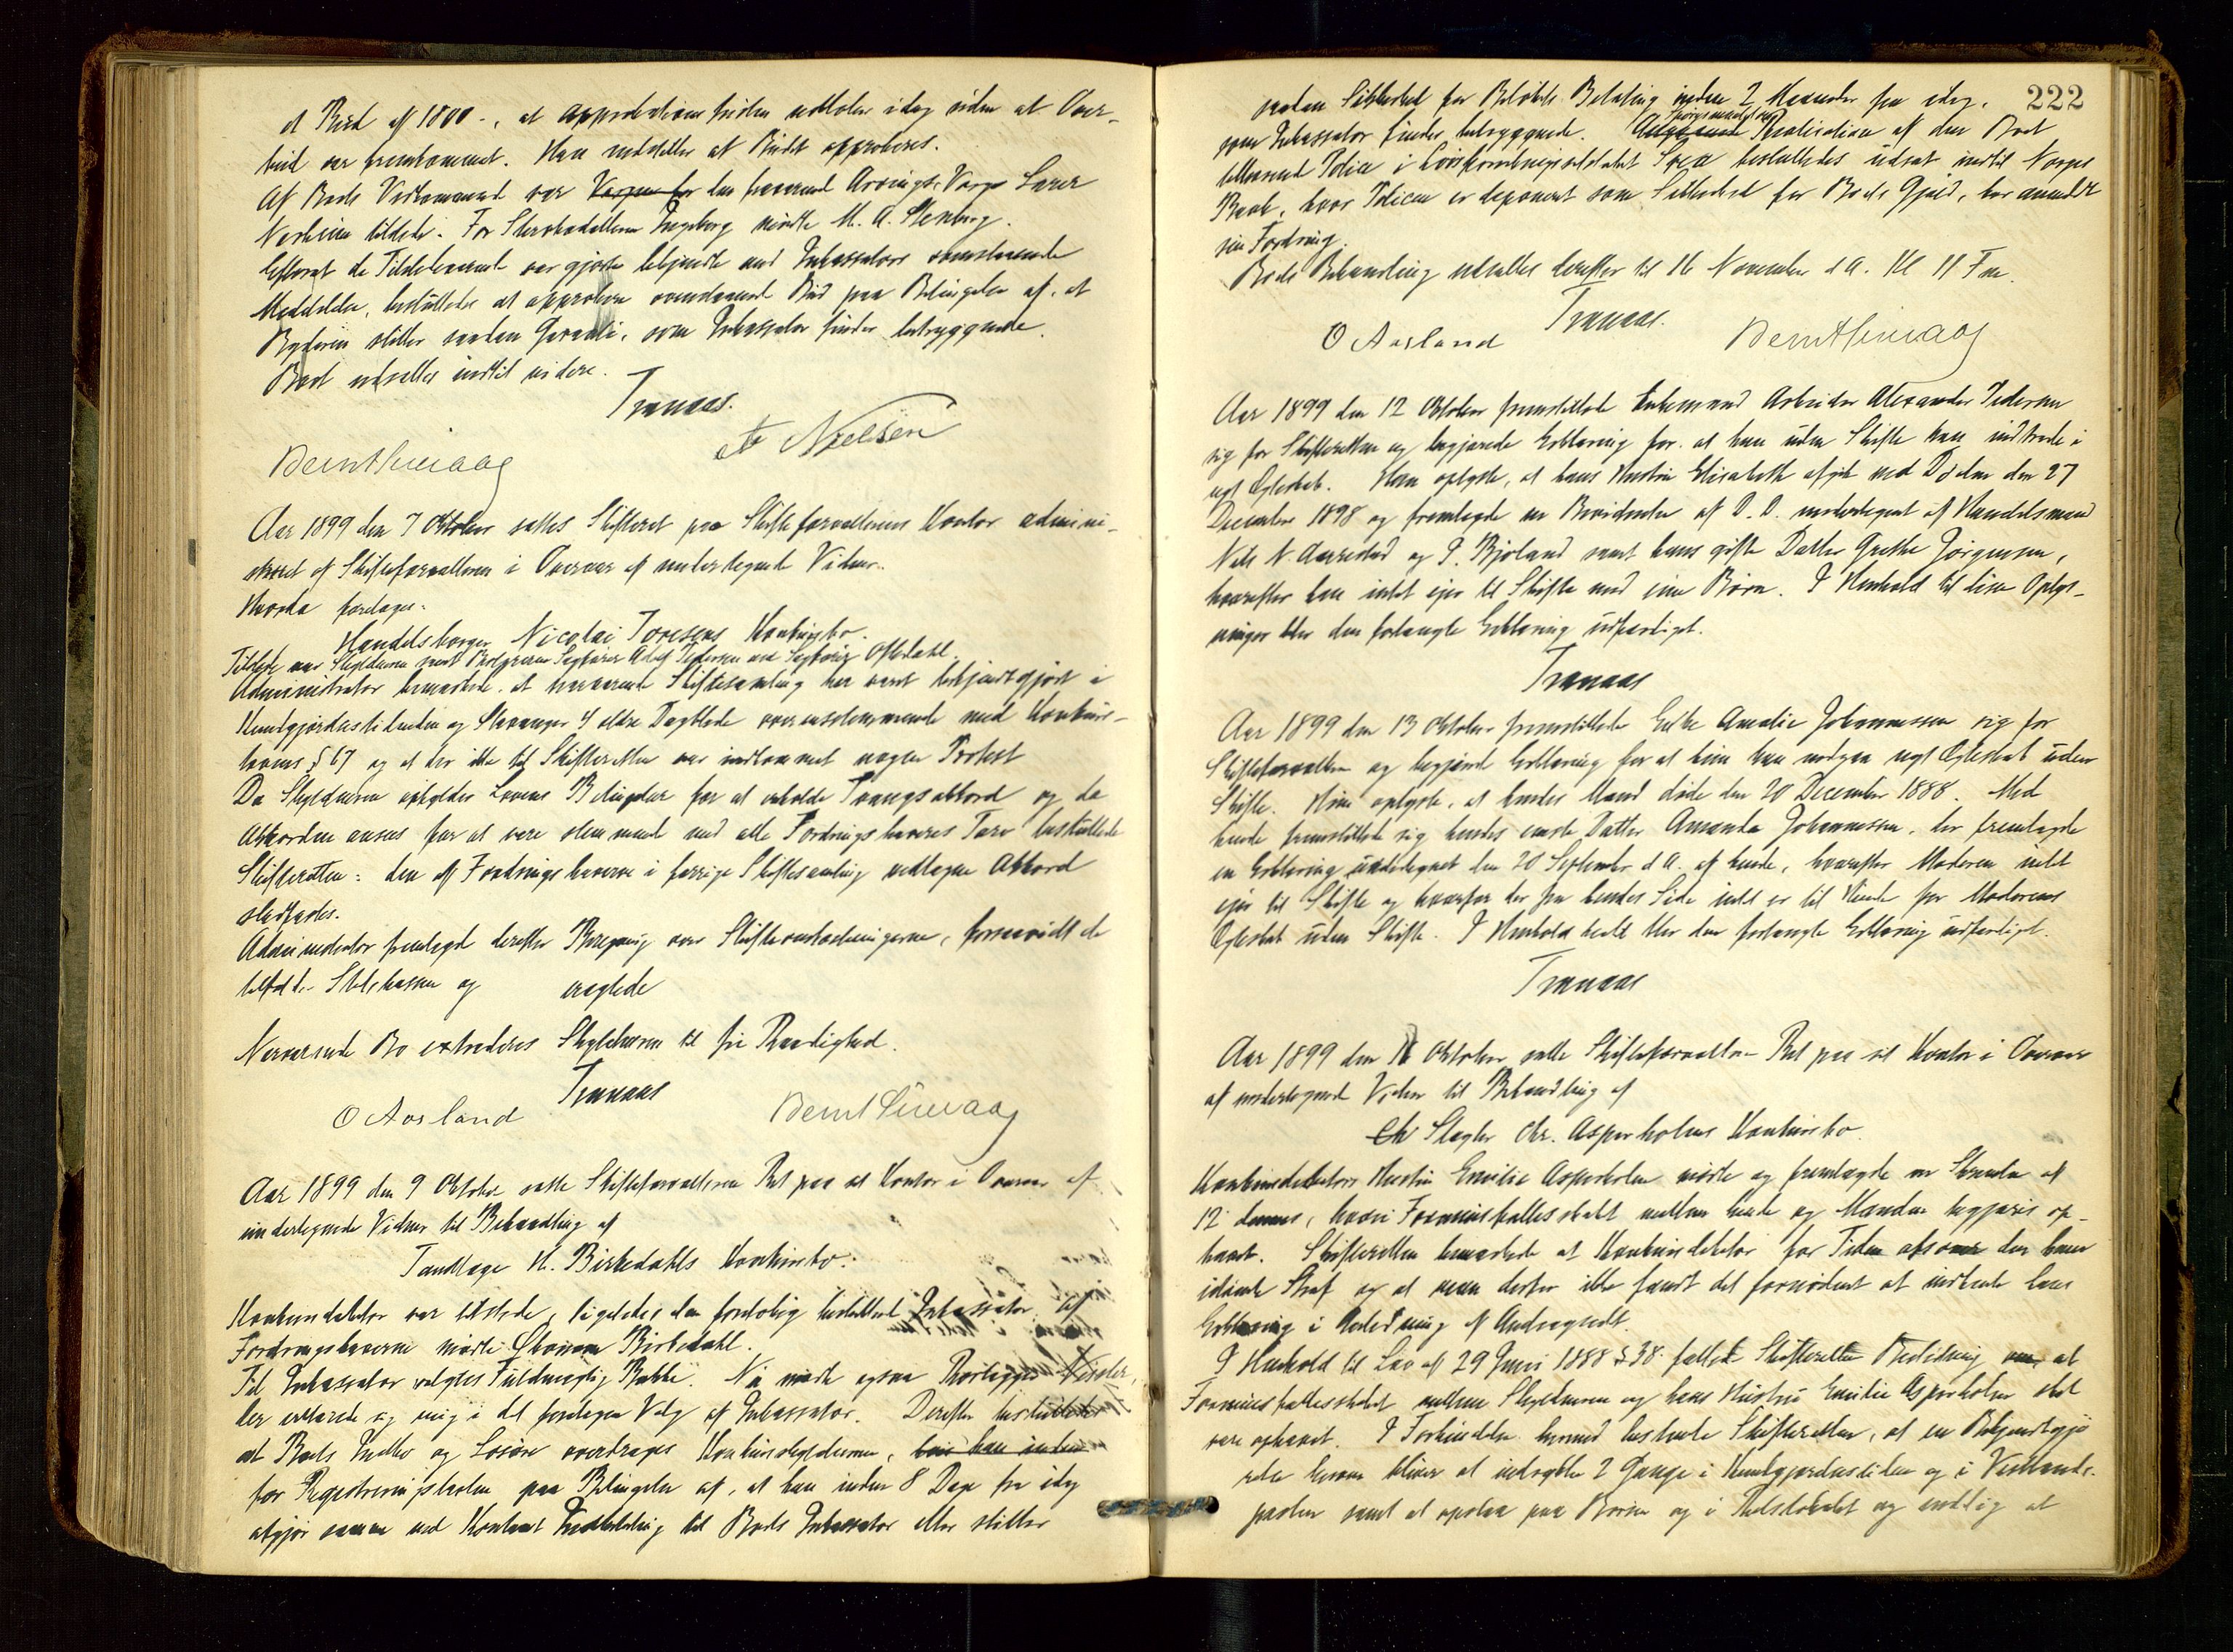 et Bud af 1800 -, at Approbationsfristen udløber idag uden at Over-
bud var fremkommet. Han indstiller at Budet approberes.
Af Boets Vedkommende var Vergen for den fraværende Arvings Verge Lærer
tilstede. For Skersbødelleren Ingeborg mødte M. A. Stenberg.
Efterat de Tilstedeværende var gjorte bekjendte med Inkassators ovenstaaende
Meddelelse, besluttedes at approbere ovenstaaende Bud paa Betingelse af, at
Byderen stiller saadan Garanti, som Inkassator finder betryggende.
Boet udsattes indtil videre.
Tranaas.
Nielsen
Berntsen
Aar 1899 den 7 Oktober sattes Skifteret paa Skifteforvalterens Kontor admini-
streret af Skifteforvalteren i Overvær af undertegnede Vidner.
Hvorda foretoges:
Handelsborger Nicolai Toresens Konkursbo.
Tilstede var Skyldneren samt Bestyreren Sagfører Adolf Pedersen ved Sagfører Oftedahl.
Administrator bemærkede, at nærværende Skiftesamling har været bekjendtgjort i
Kundgjørelsestidenden og Stavanger 4 ældre Dagblade overensstemmende med Konkurs-
lovens § 67 og at der ikke til Skifteretten var indkommet nogen Protest
Da Skyldneren opfylder Lovens Betingelser for at erholde Tvangsakkord og da
Akkorden ansees for at være stemmende med alle Fordringshaveres Tarv besluttede
Skifteretten: den af Fordringshaverne i forrige Skiftesamling vedtagne Akkord
stadfæstes.
Administrator fremlagde derefter Beregning over Skifteomkostningerne, forsaavidt de
tilfaldt Statskassen og erlagde
Nærværende Bo extraderes Skyldneren til fri Raadighed.
Tranaas
O Aasland
Aar 1899 den 9 Oktober satte Skifteforvalteren Ret paa sit Kontor i Overvær af
undertegnede Vidner til Behandling af
Tandlæge H. Birkedahls Konkursbo:
Konkursdebitor var tilstede, ligeledes den foreløbig beskikkede Inkassator. Af
Fordringshaverne mødte Birkedahl.
Til Inkassator valgtes Fuldmægtig Bakke. Nu mødte ogsaa
der erklærede sig enig i det foretagne Valg af Inkassator. Derefter besluttedes
at Boets Indbo og Løsøre overdrages Konkursskyldneren, hvis han inden
for Registreringstaksten paa Betingelse af, at han inden 8 Dage fra idag
afgjør samme ved Kontant Indbetaling til Boets Inkassator eller stiller
222
saadan Sikkerhed for Beløbets Betaling inden 2 Maaneder fra idag,
som Inkassator finder betryggende. Angaaende Spørgsmaalet om Realisation af den Boet
tilhørende Police i Livsforsikringsselskabet Svea besluttedes udsat indtil Norges
Bank, hvor Policen er deponeret som Sikkerhed for Boets Gjæld, har anmeldt
sin Fordring.
Boets Behandling udsattes derefter til 16 November d A. Kl 11 Fm.
Tranaas.
O Aasland
Aar 1899 den 12 Oktober fremstillede Enkemand Arbeider Alexander Pedersen
sig for Skifteretten og begjærede Erklæring for, at han uden Skifte kan indtræde i
nyt Ægteskab. Han oplyste, at hans Hustru Elisabeth afgik ved Døden den 27
December 1898 og fremlagde en Bevidnelse af D. D. undertegnet af Handelsmand
Nils N. Aarrestad og P. Bjoland samt hans gifte Datter Grethe Jørgensen,
hvorefter han intet eier til Skifte med sine Børn. I Henhold til disse Oplys-
ninger blev den forlangte Erklæring udfærdiget.
Tranaas
Aar 1899 den 13 Oktober fremstillede Enke Amalie Johannessen sig for
Skifteforvalteren og begjærede Erklæring for at hun kan indgaa nyt Ægteskab uden
Skifte. Hun oplyste, at hendes Mand døde den 20 December 1888. Med
hende fremstillede sig hendes eneste Datter Amanda Johannessen, der fremlagde
en Erklæring undertegnet den 20 September d A. af hende, hvorefter Moderen intet
eier til Skifte og hvorfor der fra hendes Side intet er til Hinder for Moderens
Ægteskab uden Skifte. I Henhold hertil blev den forlangte Erklæring udfærdiget.
Tranaas
Aar 1899 den Oktober satte Skifteforvalteren Ret paa sit Kontor i Overvær
af undertegnede Vidner til Behandling af
Ch Slagter Chr. Asperholms Konkursbo
Konkursdebitors Hustru Emilie Asperholm mødte og fremlagde en Skrivelse af
12 dennes, hvori Formuesfællesskabet mellem hende og Manden begjæres op-
hævet. Skifteretten bemærkede at Konkursdebitor for Tiden afsoner den ham
idømte Straf og at man derfor ikke fandt det fornødent at indhente hans
Erklæring i Anledning af Andragendet.
I Henhold til Lov af 29 Juni 1888 § 38 fattede Skifteretten Beslutning om, at
Formuesfællesskabet mellem Skyldneren og hans Hustru Emilie Asperholm skal
være ophævet. I Forbindelse hermed bestemte Skifteretten, at en Bekjendtgjø-
relse herom bliver at indrykke 2 Gange i Kundgjørelsestidende og i Vestlands-
posten samt at opslaa paa Børsen og i Retslokalet og endelig at